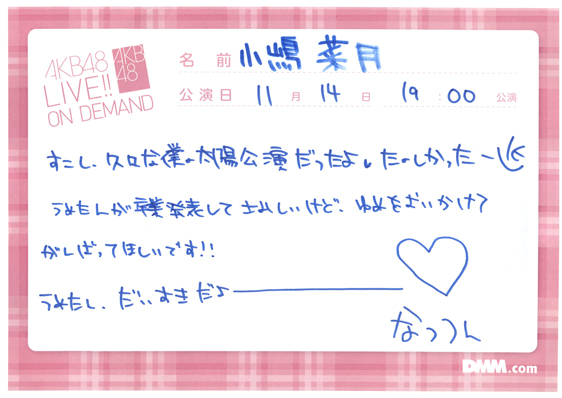 AKB48
LIVE!!
ON DEMAND
AKB
48
名前 小嶋 菜月
公演日 11月 14日 19:00 公演
すこし、久々な僕の太陽公演だったよ。たのしかったー
うめたんが卒業発表してさみしいけど、ゆめをおいかけて
がんばってほしいです!!
うめたん、だいすきだよー
なっつん
DMM.com